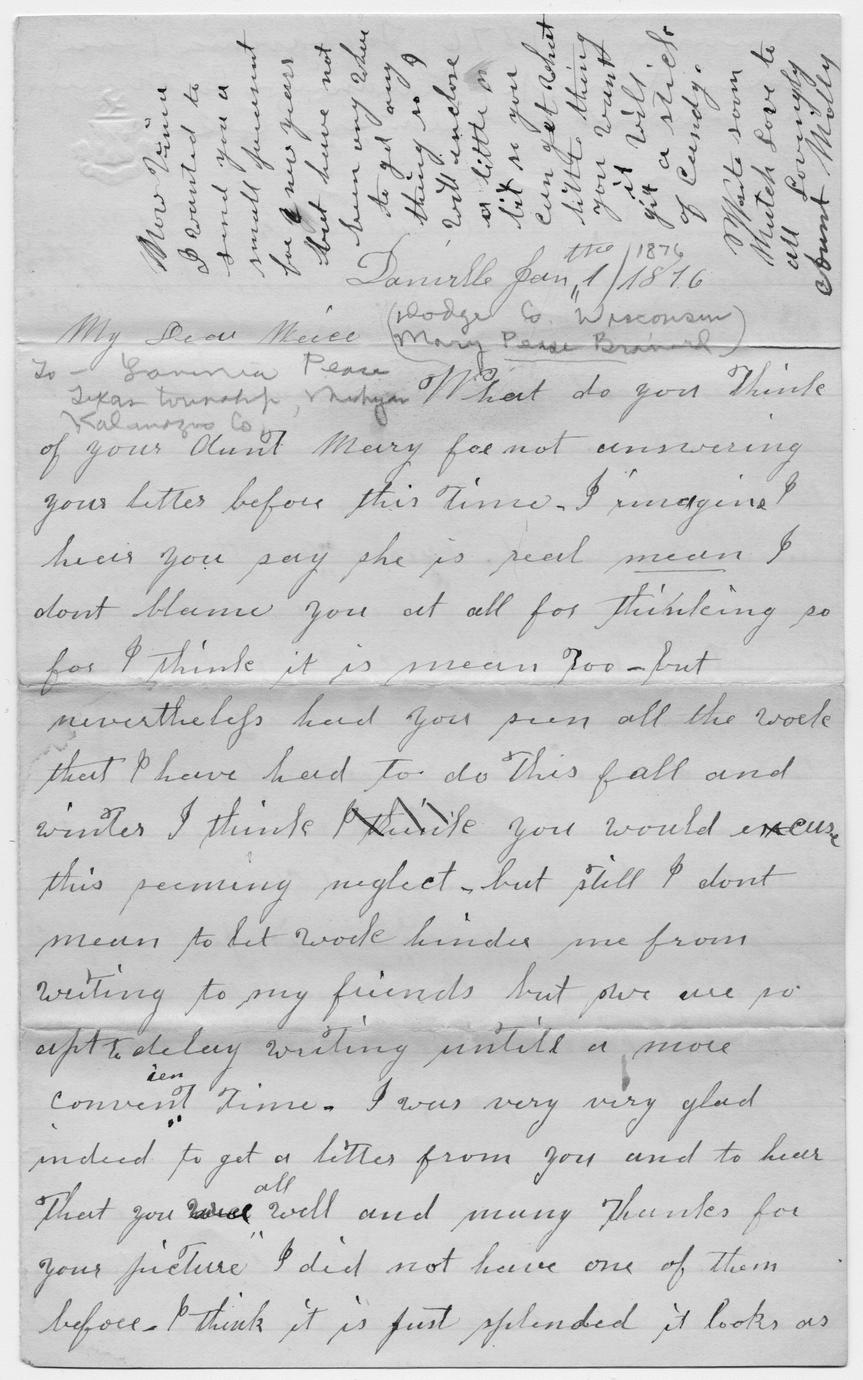 Now Vinnia
I wanted to
send you a
small present
for new years
but have not
been any where
to get any
thing so I
will enclose
a little
bit so you
can get what
little thing
you want
it will
git a stick
of Candy.
Write soon
Mutch Love to
all Lovingly
Aunt Molly
Danville Jan the 1/1876
1876
(Dodge Co. Wisconsin
Mary Pease Brainard)
My Dear Neice
To - Lavinnia Pease
Texas township, Michigan
Kalamazoo Co.
What do you Think
of your Aunt Mary for not answering
your letter before this Time - I imagine I
hear you say she is real mean I
dont blame you at all for thinking so
for I think it is mean Too - but
nevertheless had you seen all the work
that I have had to do This fall and
winter I think I think you would excuse
this seeming neglect - but still I dont
mean to let work hinder me from
writing to my friends but we are so
apt to delay writing untill a more
convenient Time - I was very very glad
indeed to get a letter from you and to hear
That you all well and many Thanks for
your picture I did not have one of them
before - I think it is just splended it looks as